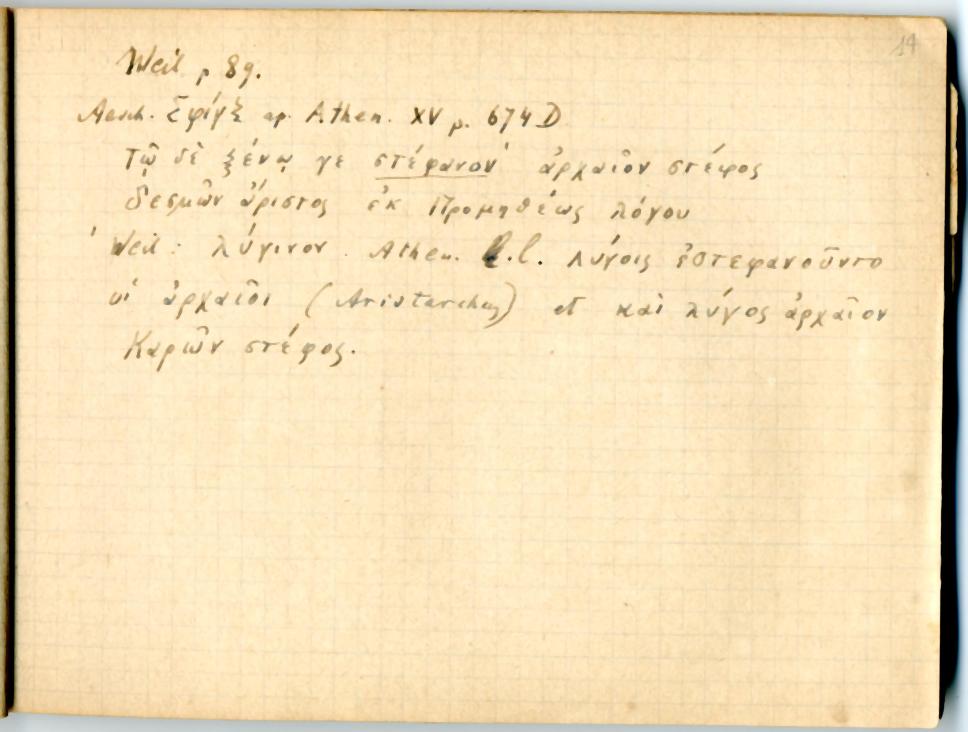 14
Weil p 89.
Aesch. Σφίγξ ap. Athen. XV p. 674 D
τῷ δὲ ξένῳ γε στέφανον' ἀρχαῖον στέφος
δεσμῶν ἄριστος ἐκ Προμηθέως λόγου
' Weil: λύγινον. Athen. l.l. λύγοις ἐστεφανοῦντο
οἱ ἀρχαῖοι (Aristarchus) et καὶ λύγος ἀρχαῖον
Καρῶν στέφος.